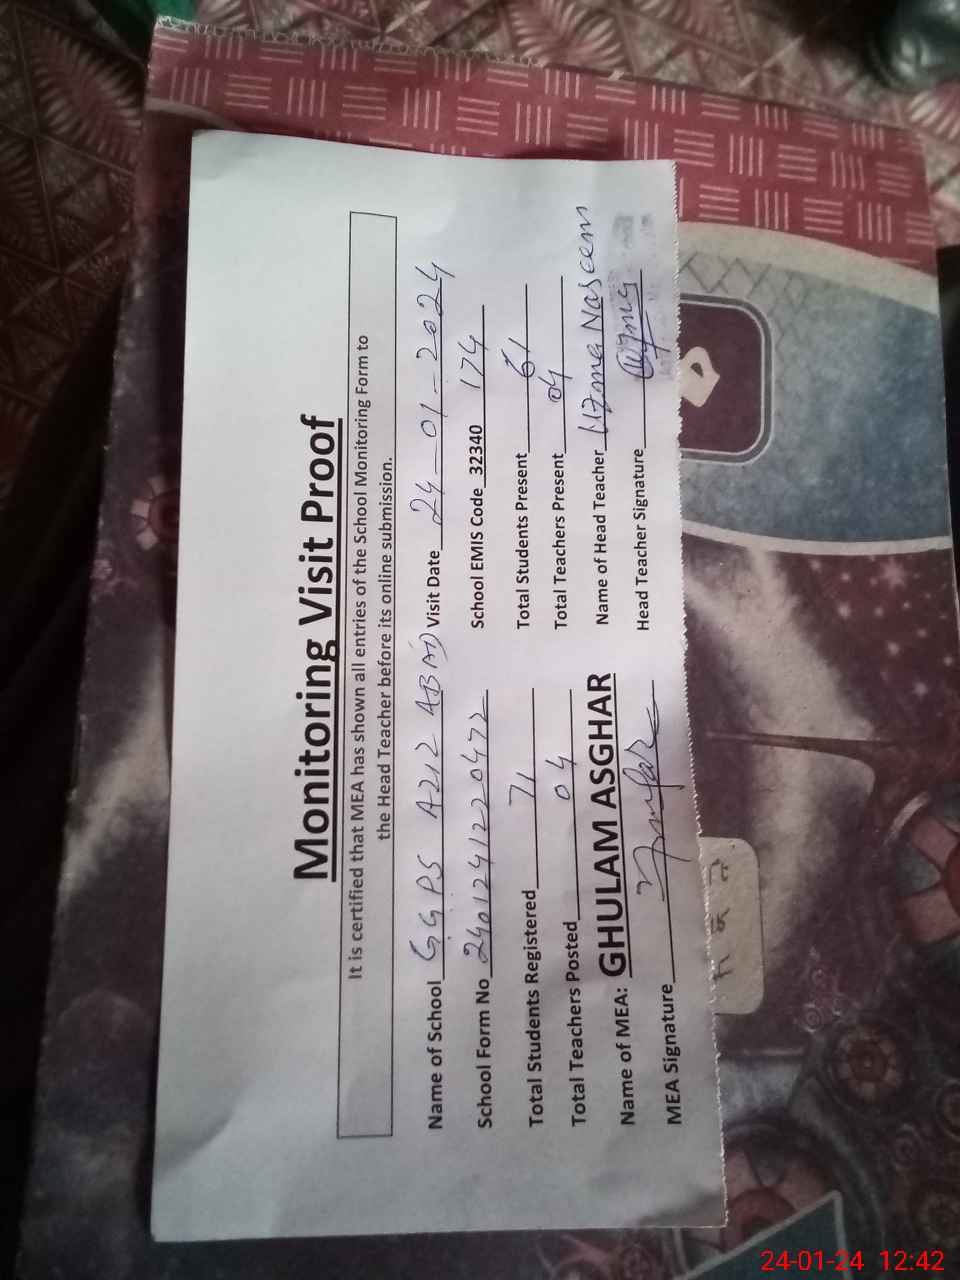 Monitoring Visit Proof
It is certified that MEA has shown all entries of the School Monitoring Form to
the Head Teacher before its online submission.
Name of School GGPS AZIZ ABAD Visit Date 24-01-2024
School Form No 2401241220472 School EMIS Code 32340 174
Total Students Registered 71 Total Students Present 61
Total Teachers Posted 04 Total Teachers Present 04
Name of MEA: GHULAM ASGHAR Name of Head Teacher Uzma Naseem
MEA Signature Head Teacher Signature Uzma
24-01-24 12:42